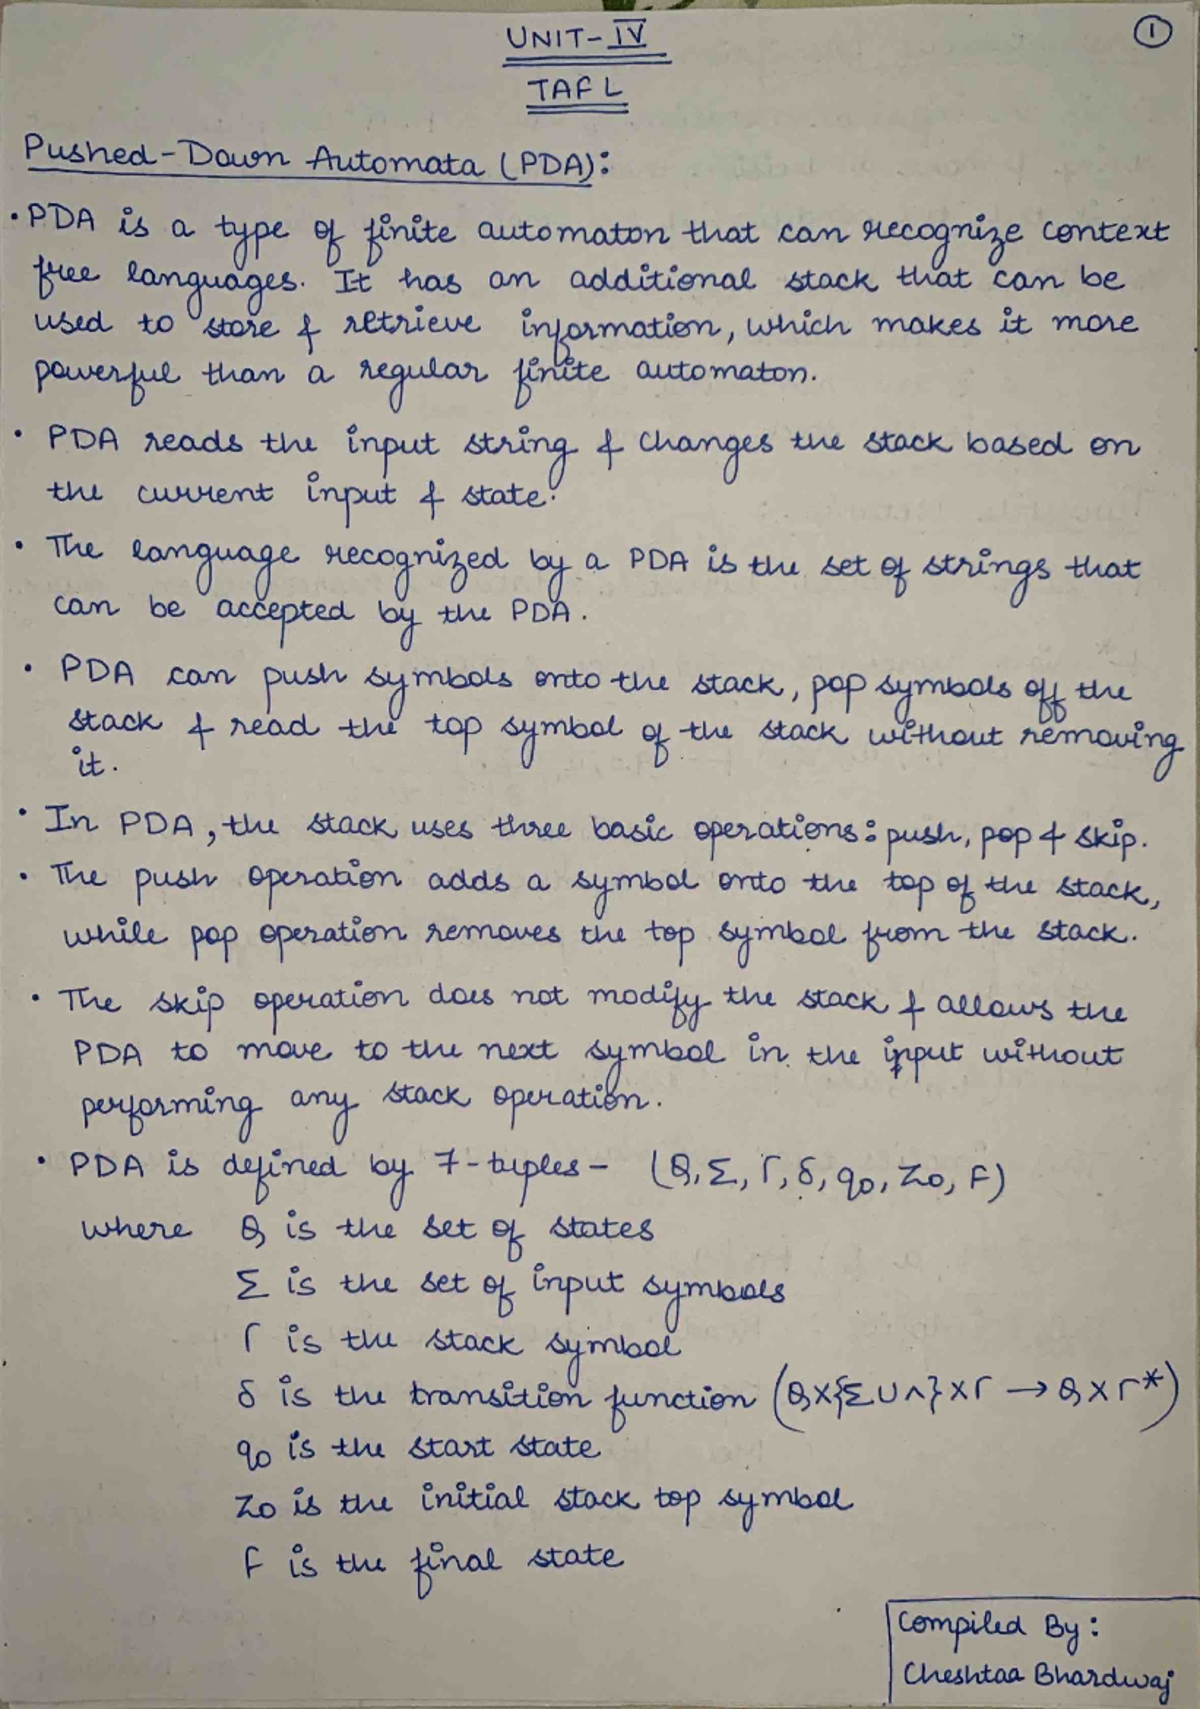 UNIT-IV
①
TAFL
Pushed-Down Automata (PDA):
• PDA is a type of finite automaton that can recognize context
free languages. It has an additional stack that can be
used to store & retrieve information, which makes it more
powerful than a regular finite automaton.
• PDA reads the input string & changes the stack based on
the current input & state.
• The language recognized by a PDA is the set of strings that
can be accepted by the PDA.
• PDA can push symbols onto the stack, pop symbols off the
stack & read the top symbol of the stack without removing
it.
• In PDA, the stack uses three basic operations: push, pop & skip.
• The push operation adds a symbol onto the top of the stack,
while pop operation removes the top symbol from the stack.
• The skip operation does not modify the stack & allows the
PDA to move to the next symbol in the input without
performing any stack operation.
• PDA is defined by 7-tuples- (Q, Σ, Γ, δ, q0, Z0, F)
where Q is the set of states
Σ is the set of input symbols
Γ is the stack symbol
δ is the transition function (Q×{Σ∪∧}×Γ → Q×Γ*)
q0 is the start state
Z0 is the initial stack top symbol
F is the final state
Compiled By:
Cheshtaa Bhardwaj